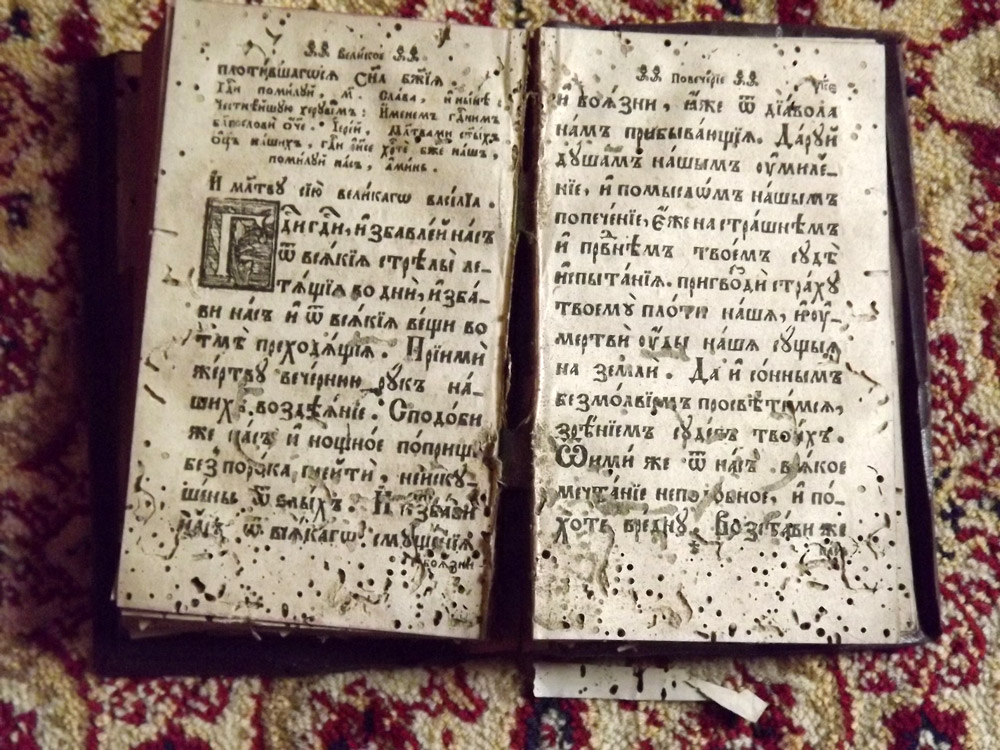 Вели́кое
плоти́вшагѡсѧ Сн҃а бж҃їѧ
Гдⷭ҇и поми́луй, м҃. Сла́ва, и҆ ны́нѣ,
Честнѣ́йшую херѹві̑мъ: И҆́менемъ гдⷭ҇нимъ
благослови̑ ѻ҆́ч҃е. І҆ере́й, Мл҃твами ст҃ы́хъ
ѻ҆ц҃ъ на́шихъ, гдⷭ҇и і҆и҃се хрⷭ҇тѐ бж҃е на́шъ,
поми́луй на́съ, а҆ми́нь.
И҆ мл҃тву сїю̀ вели́кагѡ васі́лїа.
Гдⷭ҇и гдⷭ҇и, и҆збавле́й на́съ
ѿ всѧ́кїѧ стрѣлы̀ ле–
тѧ́щїѧ во днѝ, и҆зба́–
ви на́съ и҆ ѿ всѧ́кїѧ ве́щи во
тмѣ̀ преходѧ́щїѧ. Прїимѝ
же́ртву вече́рнюю рꙋ́къ на́–
шихъ воздѣѧ́нїе. Сподо́би
же на́съ и҆ нощно́е по́прище
без̾ поро́ка прейтѝ, неискꙋ–
ше́ны ѿ ѕлы́хъ. И҆ и҆зба́ви
на́съ ѿ всѧ́кагѡ смꙋще́нїѧ
и҆ боѧ́зни
Повече́рїе
и҆ боѧ́зни, ꙗ҆́же ѿ дїа́вола
на́мъ прибыва́ющїѧ. Да́рꙋй
дꙋша́мъ на́шымъ ᲂу҆миле́–
нїе, и҆ по́мыслѡмъ на́шымъ
попече́нїе, є҆́же на стра́шнѣмъ
и҆ првⷣнѣмъ твое́мъ сꙋдѣ̀
и҆спыта́нїѧ. пригвоздѝ стра́хꙋ
твоемꙋ̀ пло́ти на́шѧ, и҆ ᲂу҆–
мертвѝ ᲂу҆́ды на́шѧ сꙋ́щыѧ
на землѝ. Да и҆ со́ннымъ
безмо́лвїемъ просвѣти́мсѧ,
зрѣ́нїемъ сꙋде́бъ твои́хъ.
Ѿимѝ же ѿ на́съ всѧ́кое
мечта́нїе неподо́бное, и҆ по́–
хоть вре́днꙋ. Возста́ви же